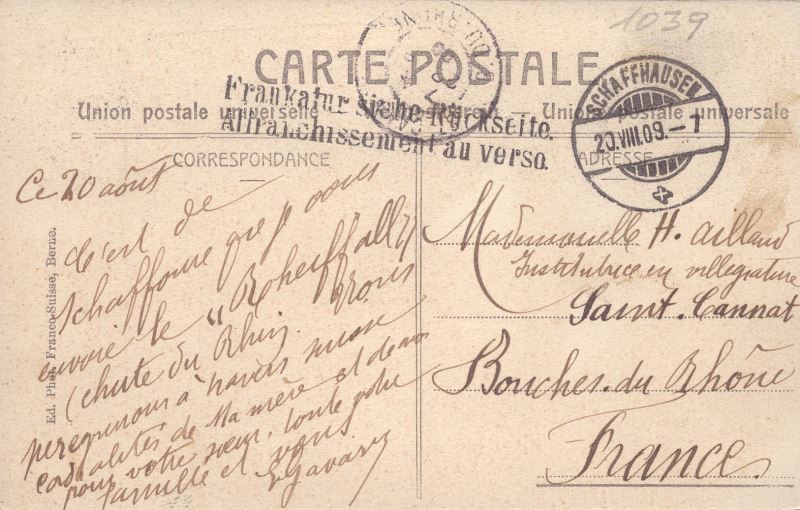 1039
CARTE POSTALE
Frankatur siehe Rückseite.
Affranchissement au verso.
Union postale universelle
Union postale universale
SCHAFFHAUSEN
20.VIII.09.-7
CORRESPONDANCE
ADRESSE
Ce 20 août
c'est de
Schaffouse que je vous
envoie le "Rheinfall"
(chute du Rhin). Nous
peregrinons à travers suisse
cordialités de Ma mère et de moi
pour votre sœur, toute votre
famille et vous
LGavary
Mademoiselle H. Aillaud
Institutrice en villegiature
Saint-Cannat
Bouches-du-Rhône
France
Ed. Phot. Franco-Suisse, Berne.